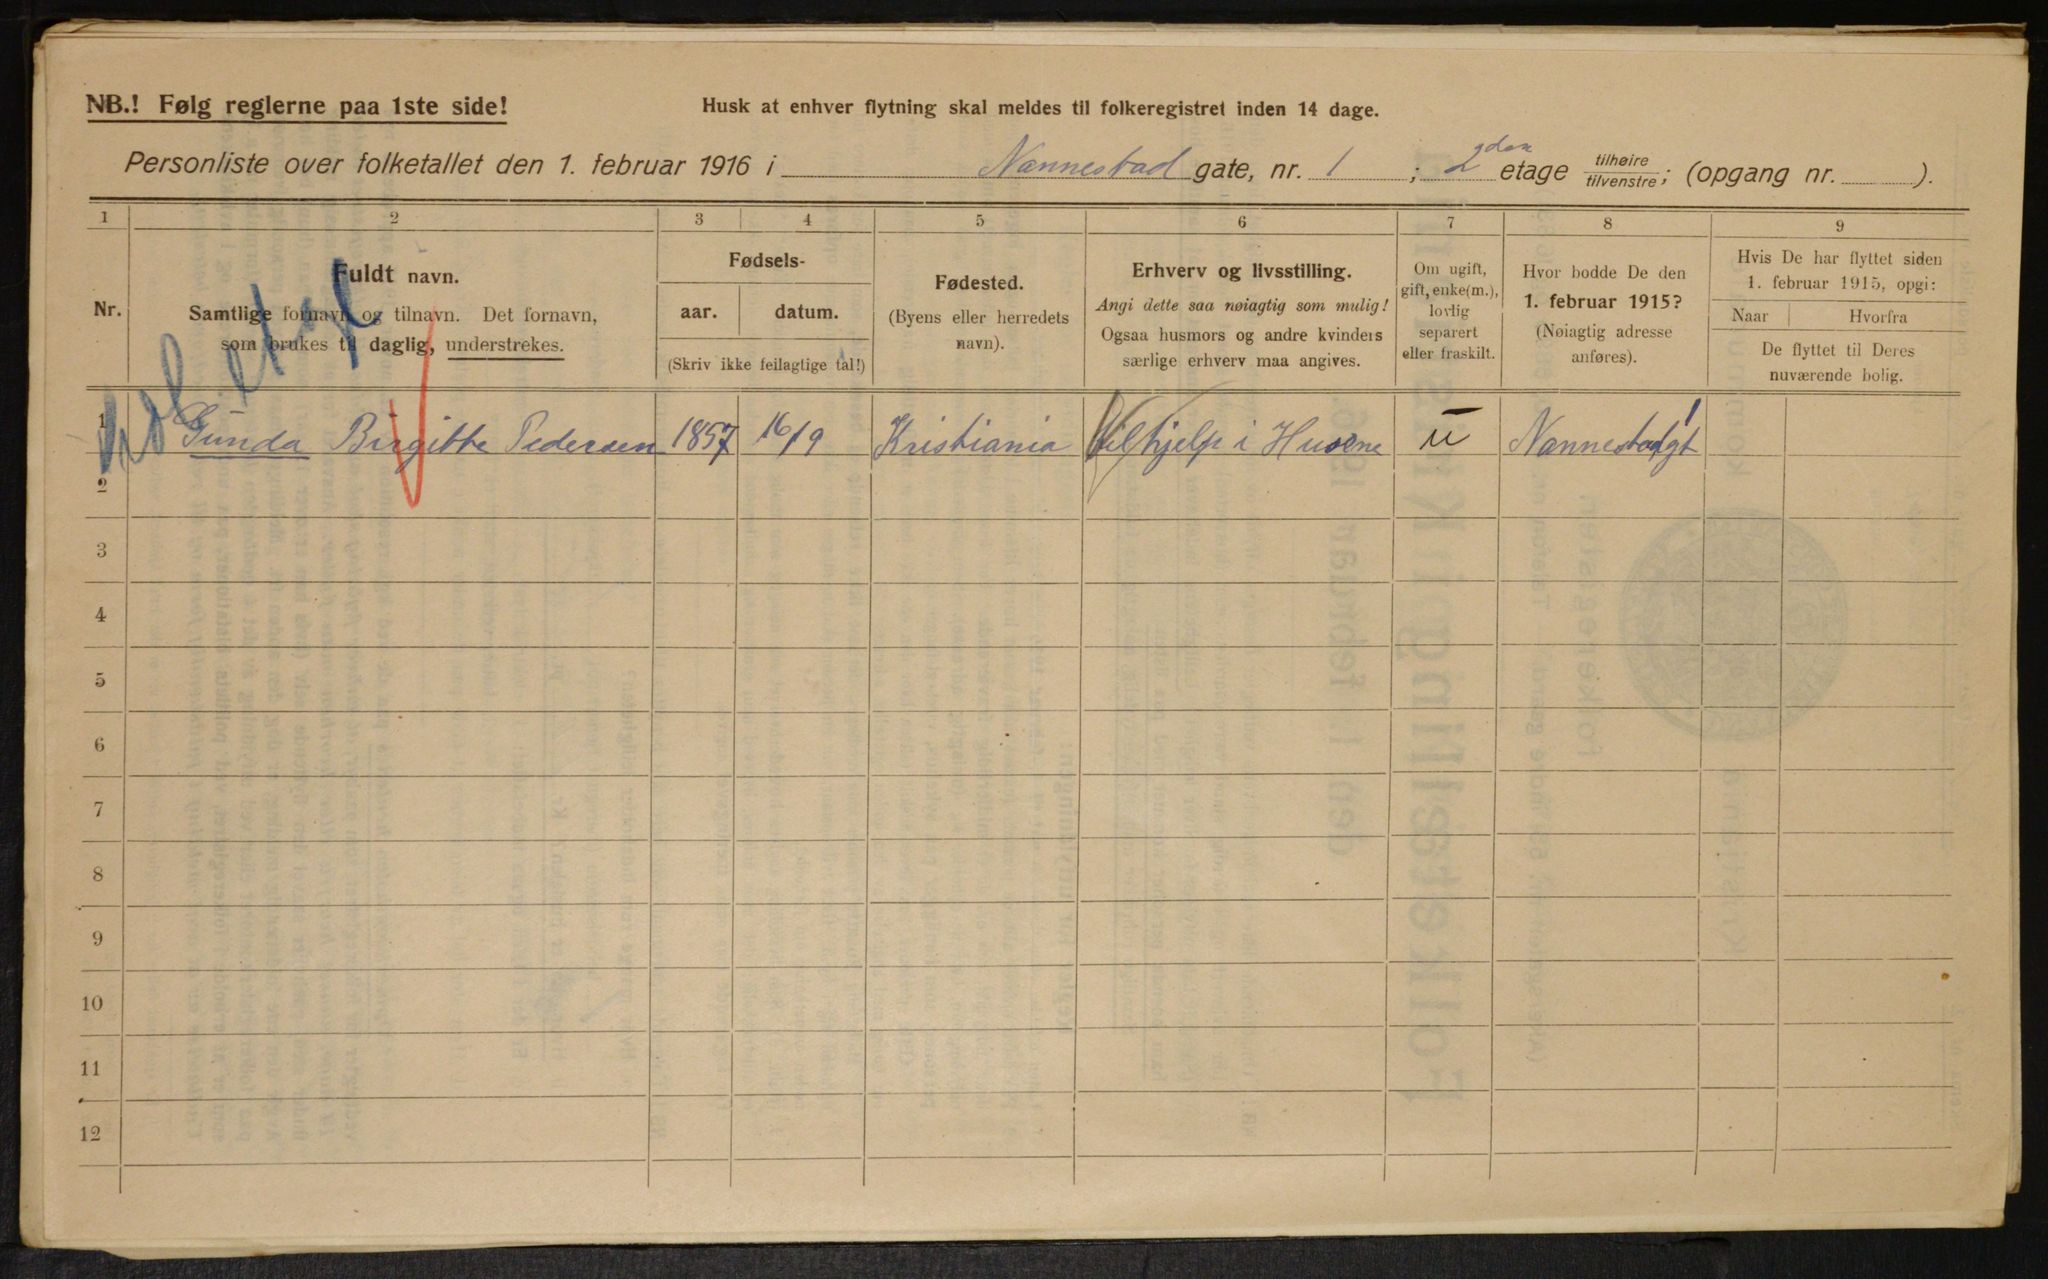 NB.! Følg reglerne paa 1ste side!
Husk at enhver flytning skal meldes til folkeregistret inden 14 dage.
Personliste over folketallet den 1. februar 1916 i Nannestad gate, nr. 1 ; 2den etage tilhøire / tilvenstre ; (opgang nr. ).
1 2 3 4 5 6 7 8 9
Nr.
Fuldt navn.
Samtlige fornavn og tilnavn. Det fornavn,
som brukes til daglig, understrekes.
Fødsels-
aar. datum.
(Skriv ikke feilagtige tal!)
Fødested.
(Byens eller herredets
navn).
Erhverv og livsstilling.
Angi dette saa nøiagtig som mulig!
Ogsaa husmors og andre kvinders
særlige erhverv maa angives.
Om ugift,
gift, enke(m.),
lovlig
separert
eller fraskilt.
Hvor bodde De den
1. februar 1915?
(Nøiagtig adresse
anføres).
Hvis De har flyttet siden
1. februar 1915, opgi:
Naar Hvorfra
De flyttet til Deres
nuværende bolig.
1 Gunda Birgitte Pedersen 1857 16/9 Kristiania Tilhjelp i Husene u Nannestadgt 1
2
3
4
5
6
7
8
9
10
11
12